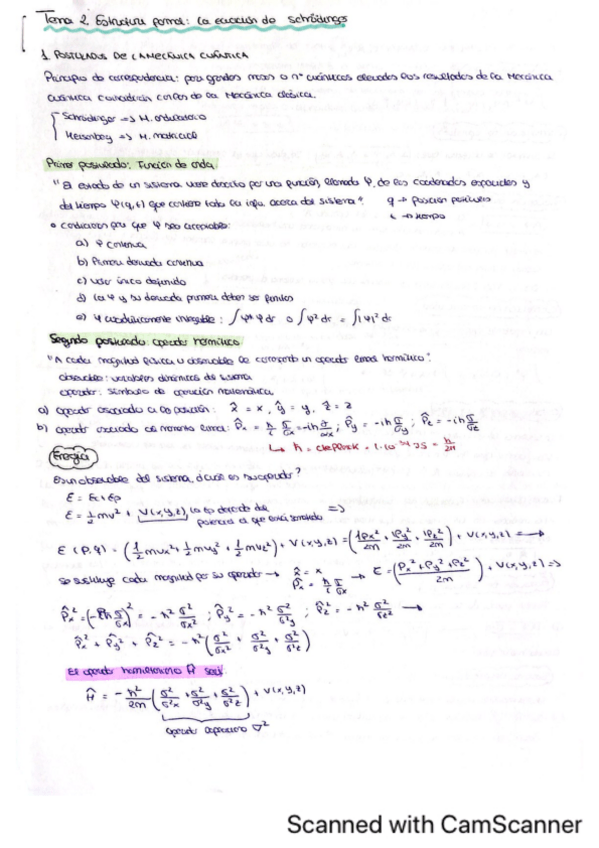 Tema 2. Estructura formal: la ecuación de Schrödinger
1. POSTULADOS DE LA MECÁNICA CUÁNTICA
Principio de correspondencia: para grandes masas o nº cuánticos elevados los resultados de la Mecánica
cuántica coincidirán con los de la Mecánica clásica.
Schrödinger => M. ondulatoria
Heisenberg => M. matricial
Primer postulado: Función de onda.
"El estado de un sistema viene descrito por una función, llamada Ψ, de las coordenadas espaciales y
del tiempo Ψ(q,t) que contiene toda la info. acerca del sistema". q → posición partículas
t → tiempo
• condiciones para que Ψ sea aceptable:
a) Ψ continua
b) Primera derivada continua
c) valor único definido
d) la Ψ y su derivada primera deben ser finitas
e) Ψ cuadráticamente integrable: ∫Ψ*Ψ dτ o ∫Ψ² dτ = ∫|Ψ|² dτ
Segundo postulado: operador hermítico
"A cada magnitud física u observable le corresponde un operador lineal hermítico".
observable: variables dinámicas del sistema
operador: símbolo de operación matemática
a) operador asociado a la posición: x̂ = x, ŷ = y, ẑ = z
b) operador asociado al momento lineal: P̂x = ħ/i δ/δx = -iħ δ/δx; P̂y = -iħ δ/δy; P̂z = -iħ δ/δz
Energía
Es un observable del sistema, ¿cuál es su operador?
E = Ec + Ep
E = ½mv² + V(x,y,z) =>
E (P,q) = (½mvx² + ½mvy² + ½mvz²) + V(x,y,z) = (1Px²/2m + 1Py²/2m + 1Pz²/2m) + V(x,y,z) =
Se sustituye cada magnitud por su operador → x̂ = x → E = (Px² + Py² + Pz² / 2m) + V(x,y,z) =>
P̂x = ħ/i δ/δx
P̂x² = (-iħ δ/δx)² = -ħ² δ²/δx²; P̂y² = -ħ² δ²/δ²y; P̂z² = -ħ² δ²/δz² →
P̂x² + P̂y² + P̂z² = -ħ² (δ²/δx² + δ²/δ²y + δ²/δ²z)
El operador hamiltoniano Ĥ será:
Ĥ = -ħ²/2m (δ²/δ²x + δ²/δ²y + δ²/δ²z) + V(x,y,z)
operador laplaciano ∇²
Scanned with CamScanner